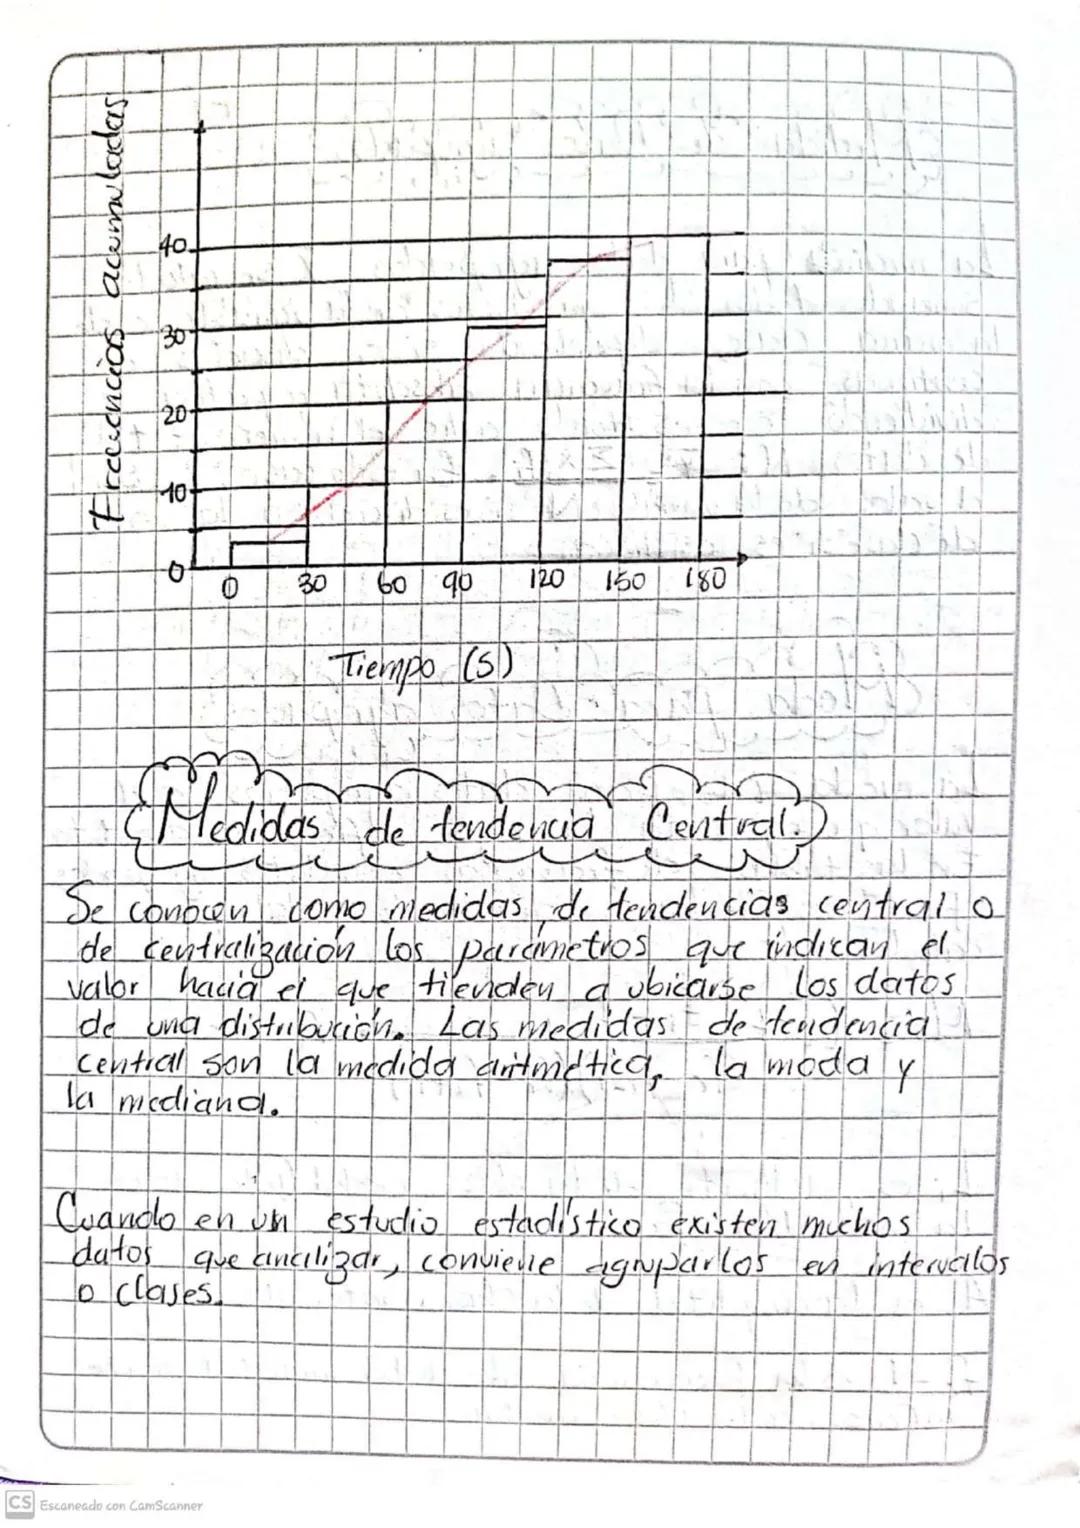 Frecuencias acumuladas
40
30
20
10
0
0 30 60 90 120 150 180
Tiempo (s)
Medidas de tendencia Central.
Se conocen como medidas de tendencias central o
de centralización los parámetros que indican el
valor hacia el que tienden a ubicarse los datos
de una distribución. Las medidas de tendencia
central son la medida aritmética, la moda y
la mediana.
Cuando en un estudio estadístico existen muchos
datos que analizar, conviene agruparlos en intervalos
o clases.
CS Escaneado con CamScanner